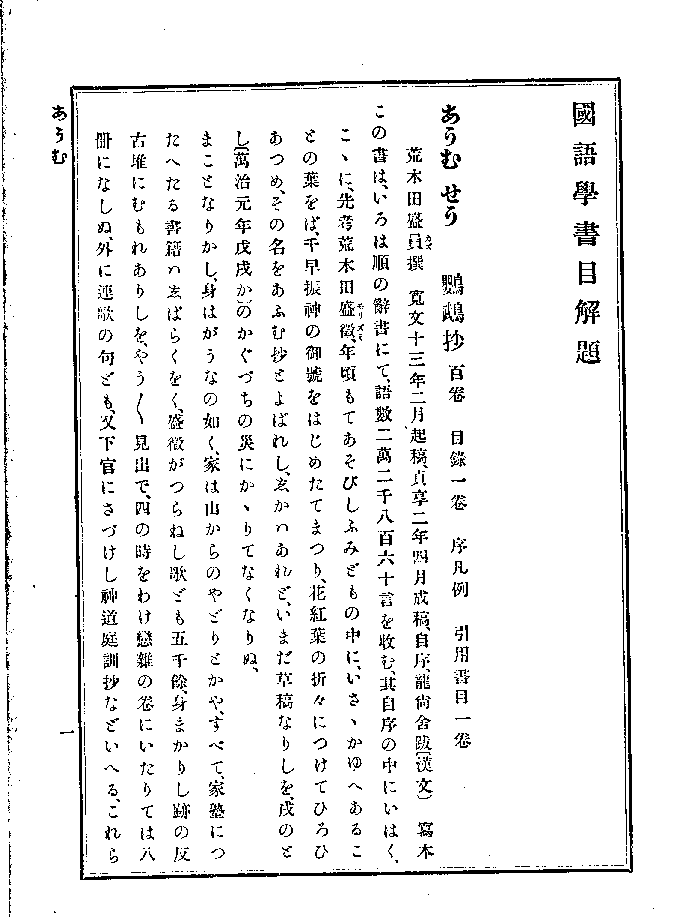 國語學書目解題
あうむせう　鸚鵡抄　百卷　目錄一卷　序凡例　引用書目一卷
荒木田盛員撰　寬文十三年二月起稿、貞享二年四月成稿、自序、龍尙舍跋(漢文)　寫本
この書は、いろは順の辭書にて、語數二萬二千八百六十言を收む、其自序の中にいはく、
こゝに、先考荒木田盛徵、年頃もてあそびしふみどもの中に、いさゝかゆへあるこ
との葉をば、千早振神の御號をはじめたてまつり、花紅葉の折々につけてひろひ
あつめ、その名をあふむ抄とよばれし、しかハあれど、いまだ草稿なりしを、戌のと
し(萬治元年戊戌か)のかぐづちの災にかゝりてなくなりぬ、
まことなりかし、身はがうなの如く、家は山からのやどりとかや、すべて、家塾につ
たへたる書籍ハゑばらくをく、盛徵がつらねし歌ども五千餘、身まかりし跡の反
古堆にむもれありしを、やう〳〵見出で、四の時をわけ戀雜の卷にいたりては八
冊になしぬ、外に連歌の句ども、又下官にさづけし神道庭訓抄などいへる、これら
あうむ
一